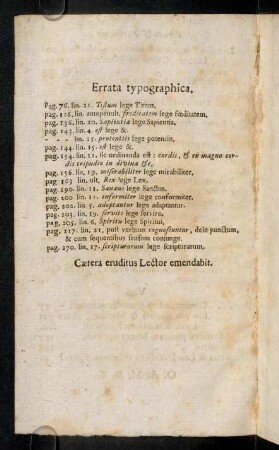 Errata typographica,
Pag. 76. lin. 21. lege
pag. 126, lin. antepenult. lege fœditatem,
pag. 136. lin. 20. Sapitutia lege Sapientia,
pag. 143. lin. 4. est lege &.
lin. 25. protentiis lege potentiis,
pag. 144. lin. 15. est lege &.
pag. 154. lin. 21. sic ordinanda est: cordis, & ex magno cor-
dis tripudio in divina &c,
pag. 156. lin. 19. miserabiliter lege mirabiliter,
pag 163. lin. ult. Rex lege Lex.
pag. 190. lin. 11. Sanans lege Sanctus.
pag. 200 lin. 21. informiter lege conformiter.
pag. 202. lin. 5. adoptantur lege adaptantur.
pag. 203. lin. 19. servis lege
pag. 205. lin. 6. Spiritu lege Spiritui,
pag. 217. lin. 21, post verbum cognoscuntur, dele punctum,
& cum sequentibus sursum conjunge.
pag. 270. lin. 17. scripturorum lege scripturarum.
Cætera eruditus Lector emendabit.